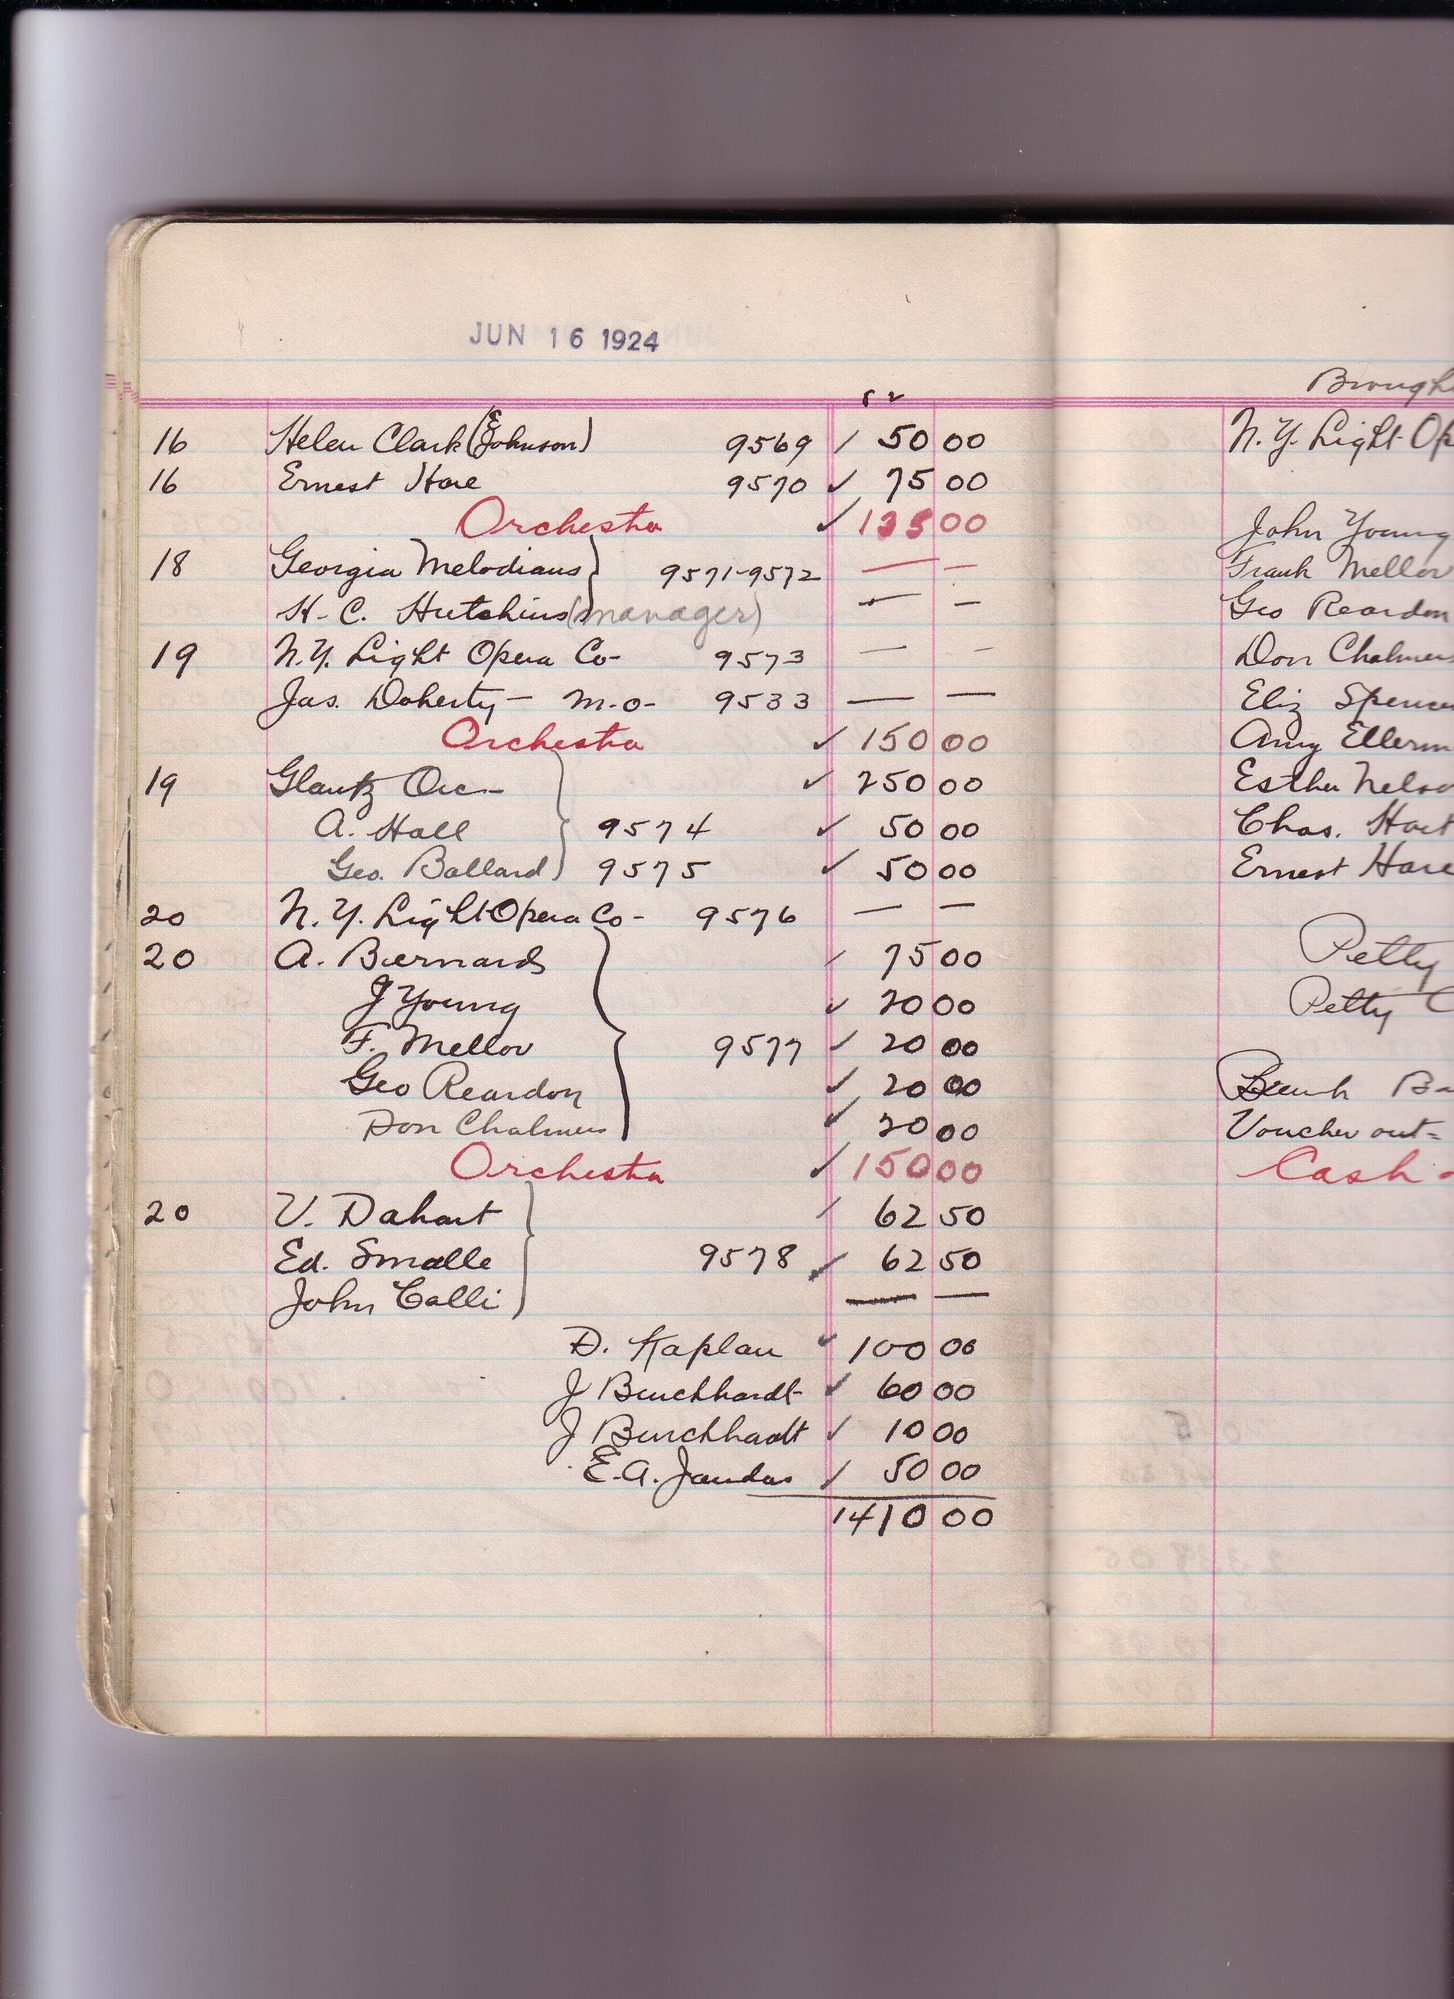 JUN 16 1924
16 Helen Clark (& Johnson) 9569 50 00
16 Ernest Hare 9570 75 00
Orchestra 135 00
18 Georgia Melodians 9571-9572 — —
H. C. Hutchins (manager) — —
19 N.Y. Light Opera Co- 9573 — —
Jas. Doherty - m.o- 9533 — —
Orchestra 150 00
19 Glantz Orc- 250 00
A. Hall 9574 50 00
Geo. Ballard 9575 50 00
20 N.Y. Light Opera Co- 9576 — —
20 A. Bernard 75 00
J Young 20 00
F. Mellor 9577 20 00
Geo Reardon 20 00
Don Chalmers 20 00
Orchestra 150 00
20 V. Dahart 62 50
Ed. Smalle 9578 62 50
John Calli — —
D. Kaplan 100 00
J Burckhardt 60 00
J Burckhardt 10 00
E.A. Jaudas 50 00
1410 00
Brough
N.Y. Light Op
John Young
Frank Mellor
Geo Reardon
Don Chalmers
Eliz Spencer
Amy Ellerm
Esther Nelso
Chas. Hart
Ernest Hare
Petty
Petty C
Voucher out-
Cash -